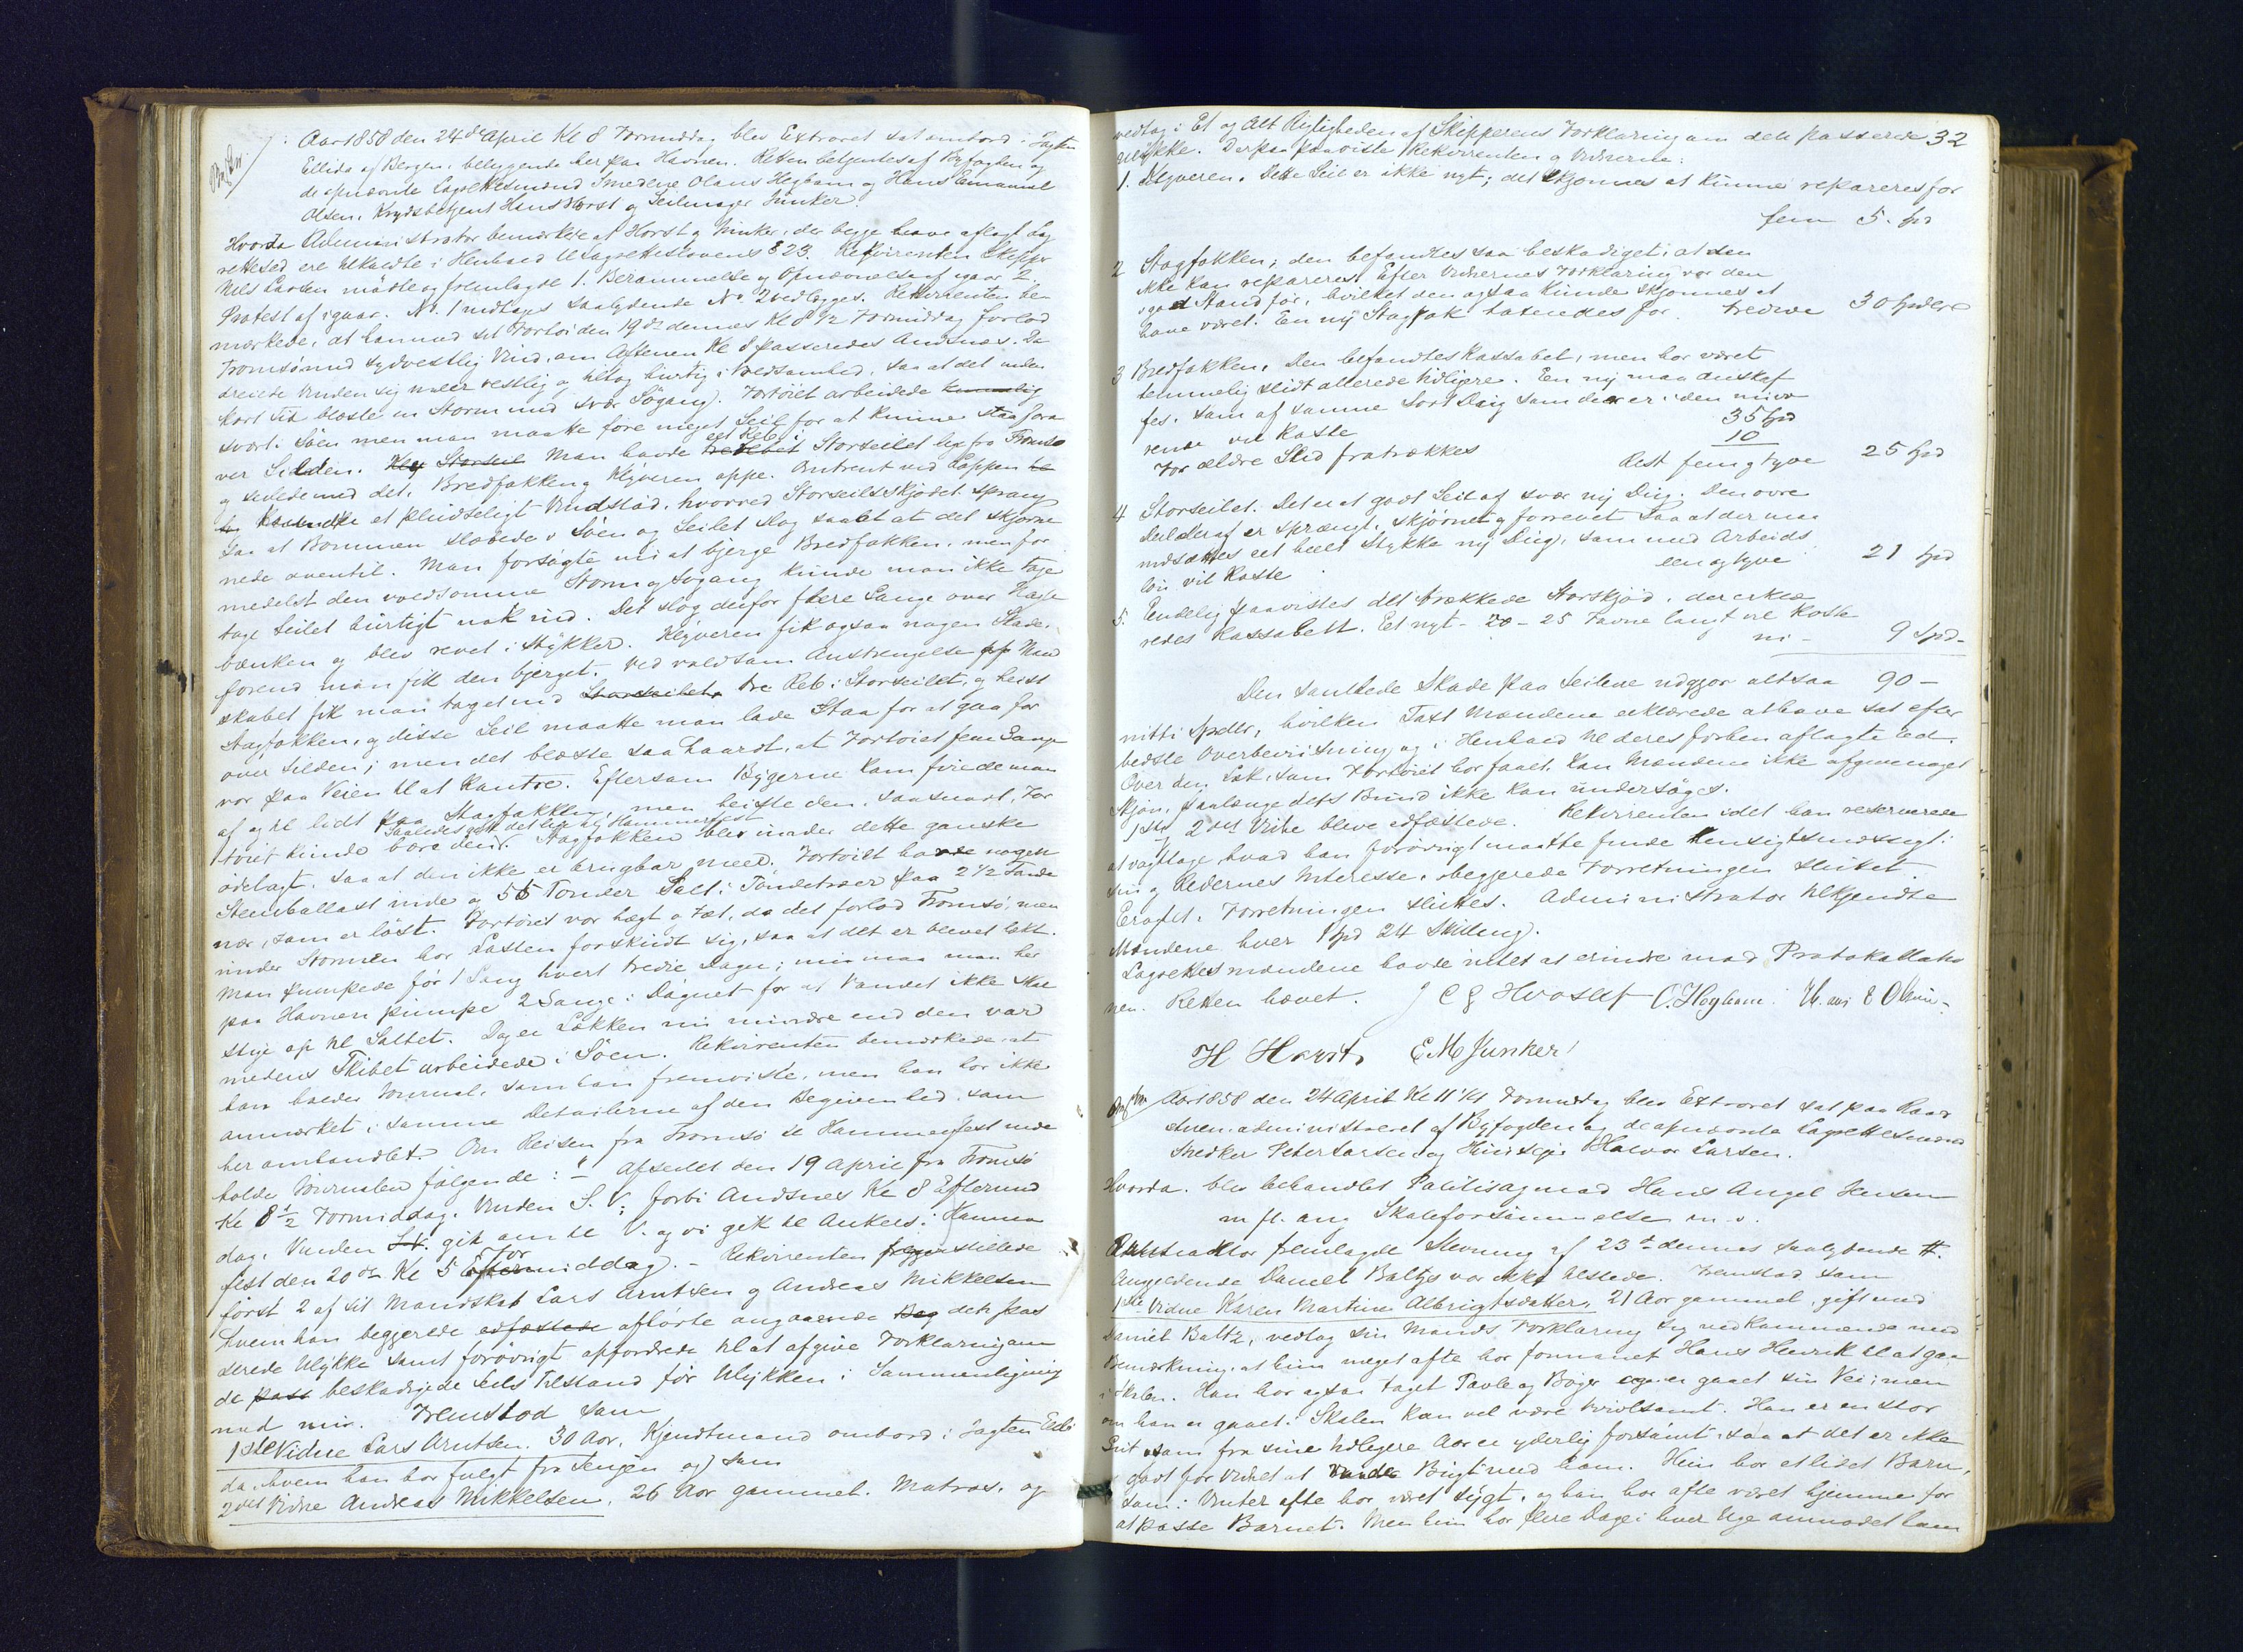 Aar 1858 den 24de April Kl 8 Formiddag blev Extraret sat ombord i Jagten
Ellida af Bergen, beliggende her paa Havnen. Retten betjentes af Byfogden og
de opnævnte Lagrettesmænd Smedene Olaus Hegham og Hans Emanuel
Olsen, Krydsbetjent Hans Horst og Seilmager Junker.
Hvorda Administrator bemærkede at Horst og Junker, der begge have aflagt Lag
rettesed ere tilkaldte i Henhold til Lagrettelovens § 23. Rekvirenten Skipper
Nils Larsen mødte og fremlagde 1. Berammelse og Opnævnelse af igaar 2.
Protest af igaar. No. 1 indtages saalydende No 2 vedlægges. Rekvirenten be
mærkede, at han med sit Fartøi den 19de dennes Kl 8 1/2 Formiddag forlod
Tromsø med sydvestlig Vind, om Aftenen Kl 8 passeredes Andsnæs. Da
dreiede Vinden sig meer vestlig og tiltog hurtig i Voldsomhed, saa at det inden
kort Tid blæste en Storm med svær Søgang. Fartøiet arbeidede
svært i Søen men man maatte føre meget Seil for at kunne staa fora
ver Silden. Man havde eet Reb i Storseilet lige fra Tromsø
og seilede med det, Bredfokken og Klyveren oppe. Omtrent ved Loppen
et pludseligt Vindstød, hvorved Storseilsskjødet sprang
saa at Bommen slæbede i Søen og Seilet slog saa at det skjørne
nede oventil. Man forsøgte nu at bjerge Bredfokken, men for
medelst den voldsomme Storm og Søgang kunde man ikke tage
tage Seilet hurtigt nok ind. Det slog derfor flere Gange over Hage
bænken og blev revet i Stykker. Klyveren fik ogsaa nogen Skade,
forend man fik den bjerget. Ved voldsom Anstrengelse af Mand
skabet fik man taget ind tre Reb i Storseilet, og heist
Stagfokken, og disse Seil maatte man lade Staa for at gaa for
over Silden; men det blæste saa haardt, at Fartøiet fem Gange
var paa Veien til at kantre. Eftersom Bygerne kom firede man
af og til lidt paa Stagfokken, men heiste den, saasnart, Far
tøiet kunde bære den. Saaledes gik det lige til Hammerfest Stagfokken blev under dette ganske
ødelagt, saa at den ikke er brugbar meer. Fartøiet havde nogen
Steenballast inde og 55 Tønder Salt i Tøndetræer paa 2 1/2 Tønde
nær, som er løst. Fartøiet var tægt og tæt, da det forlod Tromsø, men
under Stormen har Lasten forskudt sig, saa at det er blevet lækt.
Man pumpede før 1 Gang hvert tredie Dage; nu maa man her
paa Havnen pumpe 2 Gange i Døgnet for at Vandet ikke skal
stige op til Saltet. Dog er Lækken nu mindre end den var
medens Skibet arbeidede i Søen. Rekvirenten bemærkede, at
han holder Journal, som han fremviste, men han har ikke
anmærket i samme Detailerne af den Begivenhed, som
her omhandles. Om Reisen fra Tromsø til Hammerfest inde
holder Journalen følgende: "Afseilet den 19 April fra Tromsø
Kl 8 1/2 Formiddag. Vinden S.V; forbi Andsnes Kl 8 Eftermid
dag, Vinden S.V. gik om til V. og vi gik til Ankers i Hammer
fest den 20de Kl 5 Formiddag. - Rekvirenten fremstillede
først 2 af sit Mandskab Lars Arntsen og Andreas Mikkelsen
hvem han begjerede afhørte angaaende det pas
serede Ulykke samt forøvrigt opfordrede til at afgive Forklaring om
de beskadigede Seils Tilstand før Ulykken i Sammenligning
med nu. Fremstod som
1ste Vidne Lars Arntsen. 30 Aar, Kjendtmand ombord i Jagten Elli
da, hvem han har fulgt fra Senjen og som
2det Vidne Andreas Mikkelsen, 26 Aar gammel. Matros, og
32
vedtog i Et og Alt Rigtigheden af Skipperens Forklaring om dette passerede
Ulykke. Derpaa paaviste Rekvirenten og Vidnerne:
1. Klyveren. Dette Seil er ikke nyt; det skjønnes at kunne repareres for
fem 5. Spd
2 Stagfokken; den befandtes saa beskadiget, at den
ikke kan repareres. Efter Vidnernes Forklaring var den
i god Stand før, hvilket den ogsaa kunde skjønnes at
have været. En ny Stagfok taxeredes for tredive 30 Spdlr
3 Bredfokken. Den befandtes kassabel, men har været
temmelig slidt allerede tidligere. En ny maa anskaf
fes, som af samme Sort Dug som den er i den nuvæ
rende vil koste 35 Spd
For ældre Slid fratrækkes 10
Rest fem og tyve 25 Spd
4 Storseilet. Det er et godt Seil af svær ny Dug. Den øvre
Deel deraf er sprængt, skjørnet og forrevet saa at der maa
indsættes eet heelt Stykke ny Dug, som med Arbeids
løn vil koste een og tyve 21 Spd
5. Endelig paavistes det trækkede Storskjød, der erklæ
redes kassabelt. Eet nyt - 20-25 Favne langt vil koste
ni - 9 Spd-
Den samlede Skade paa Seilene udgjør altsaa 90 -
nitti Spdlr, hvilken Taxt Mændene erklærede at have sat efter
bedste Overbeviisning og i Henhold til deres forhen aflagte Eed.
Over den Læk, som Fartøiet har faaet, kan Mændene ikke afgive noget
Skjøn, saalænge dets Bund ikke kan undersøges.
1ste og 2det Vidne bleve edfæstede. Rekvirenten idet han reserverede
at vagttage, hvad han forøvrigt maatte finde hensigtsmæssigt i
sin og Redernes Interesse, begjerede Forretningen sluttet.
Eragtet. Forretningen sluttes. Administrator tilkjendte
Mændene hver 1 Spd 24 Skilling.
Lagrettesmændene havde intet at erindre mod Protokollatio
nen. Retten hævet. J C G Hvoslef O. Hegham. Hans E Olsen.
H Horst EM Junker
Aar 1858 den 24 April Kl 11 1/4 Formiddag blev Extraret sat paa Raad
stuen, administreret af Byfogden og de opnævnte Lagrettesmænd
Snedker Peter Larsen og Huuseier Halvor Larsen.
Hvorda blev behandlet Politisag mod Hans Angel Hensen
m fl. ang Skoleforsømmelse m. v.
Aktor fremlagde Stevning af 23de dennes saalydende #.
Angjeldende Daniel Baltz var ikke tilstede. Fremstod som
1ste Vidne Karen Martine Albrigtsdatter, 21 Aar gammel, gift med
Daniel Baltz, vedtog sin Mands Forklaring sig vedkommende med
Bemærkning, at hun meget ofte har formanet Hans Henrik til at gaa
i Skolen. Han har ogsaa taget Tavle og Bøger og er gaaet sin Vei; men
om han er gaaet i Skolen kan vel være tvivlsomt. Han er en stor
Gut som fra sine tidligere Aar er yderlig forsømt, saa at det er ikke
godt for Vidnet at Bugt med ham. Hun har et lidet Barn,
som i Vinter ofte har været sygt, og han har ofte været hjemme for
at passe Barnet. Men hun har flere Dage i hver Uge anmodet ham